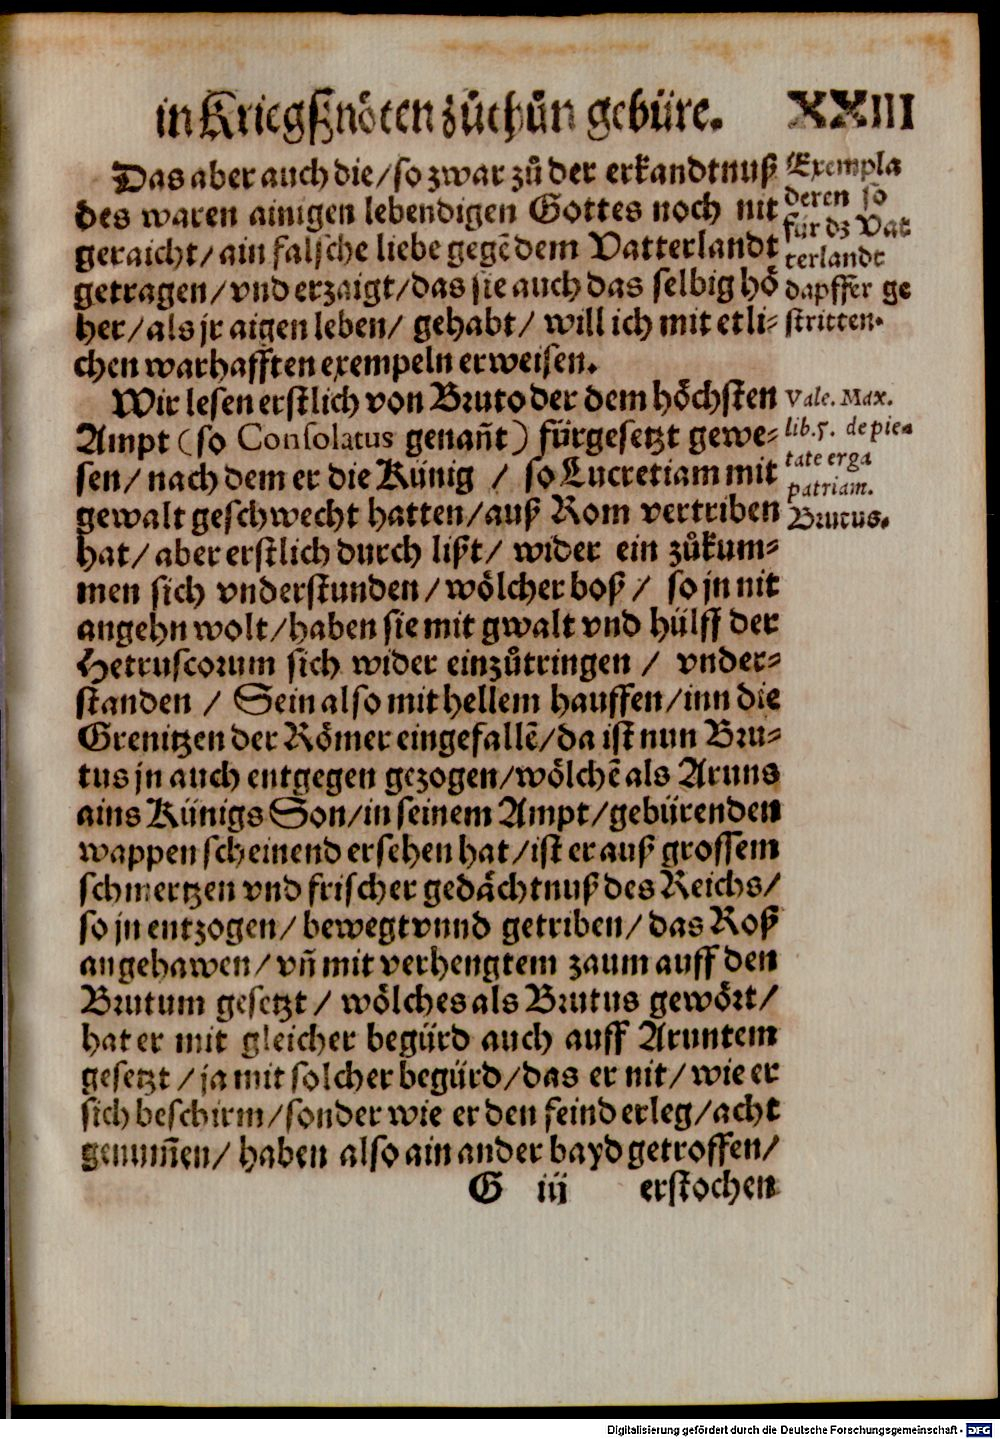 in Kriegßnöten zůthůn gebüre. XXIII
Das aber auch die/so zwar zů der erkandtnuß
des waren ainigen lebendigen Gottes noch nit
geraicht/ain falsche liebe gegē dem Vatterlandt
getragen/vnd erzaigt/das sie auch das selbig hö
her/als jr aigen leben/ gehabt/ will ich mit etli-
chen warhafften exempeln erweisen.
Exempla
deren so
für dz Vat
terlandt
dapffer ge
stritten.
Wir lesen erstlich von Bruto der dem höchsten
Ampt (so Consolatus genañt) fürgesetzt gewe-
sen/ nach dem er die Künig / so Lucretiam mit
gewalt geschwecht hatten/auß Rom vertriben
hat/ aber erstlich durch lißt/ wider ein zůkum-
men sich vnderstunden/wölcher boß/ so jn nit
angehn wolt/haben sie mit gwalt vnd hülff der
Hetruscorum sich wider einzůtringen / vnder-
standen / Sein also mit hellem hauffen/inn die
Grenitzen der Römer eingefallē/da ist nun Bru-
tus jn auch entgegen gezogen/wölchē als Aruns
ains Künigs Son/in seinem Ampt/gebürenden
wappen scheinend ersehen hat/ist er auß grossem
schmertzen vnd frischer gedächtnuß des Reichs/
so jn entzogen/ bewegt vnnd getriben/ das Roß
angehawen/ vñ mit verhengtem zaum auff den
Brutum gesetzt/ wölches als Brutus gewört/
hat er mit gleicher begürd auch auff Aruntem
gesetzt/ja mit solcher begürd/das er nit/wie er
sich beschirm/sonder wie er den feind erleg/acht
genum̄en/ haben also ain ander bayd getroffen/
Vale. Max.
lib.5. de pie-
tate erga
patriam.
Brutus.
G iij erstochen
Digitalisierung gefördert durch die Deutsche Forschungsgemeinschaft - DFG